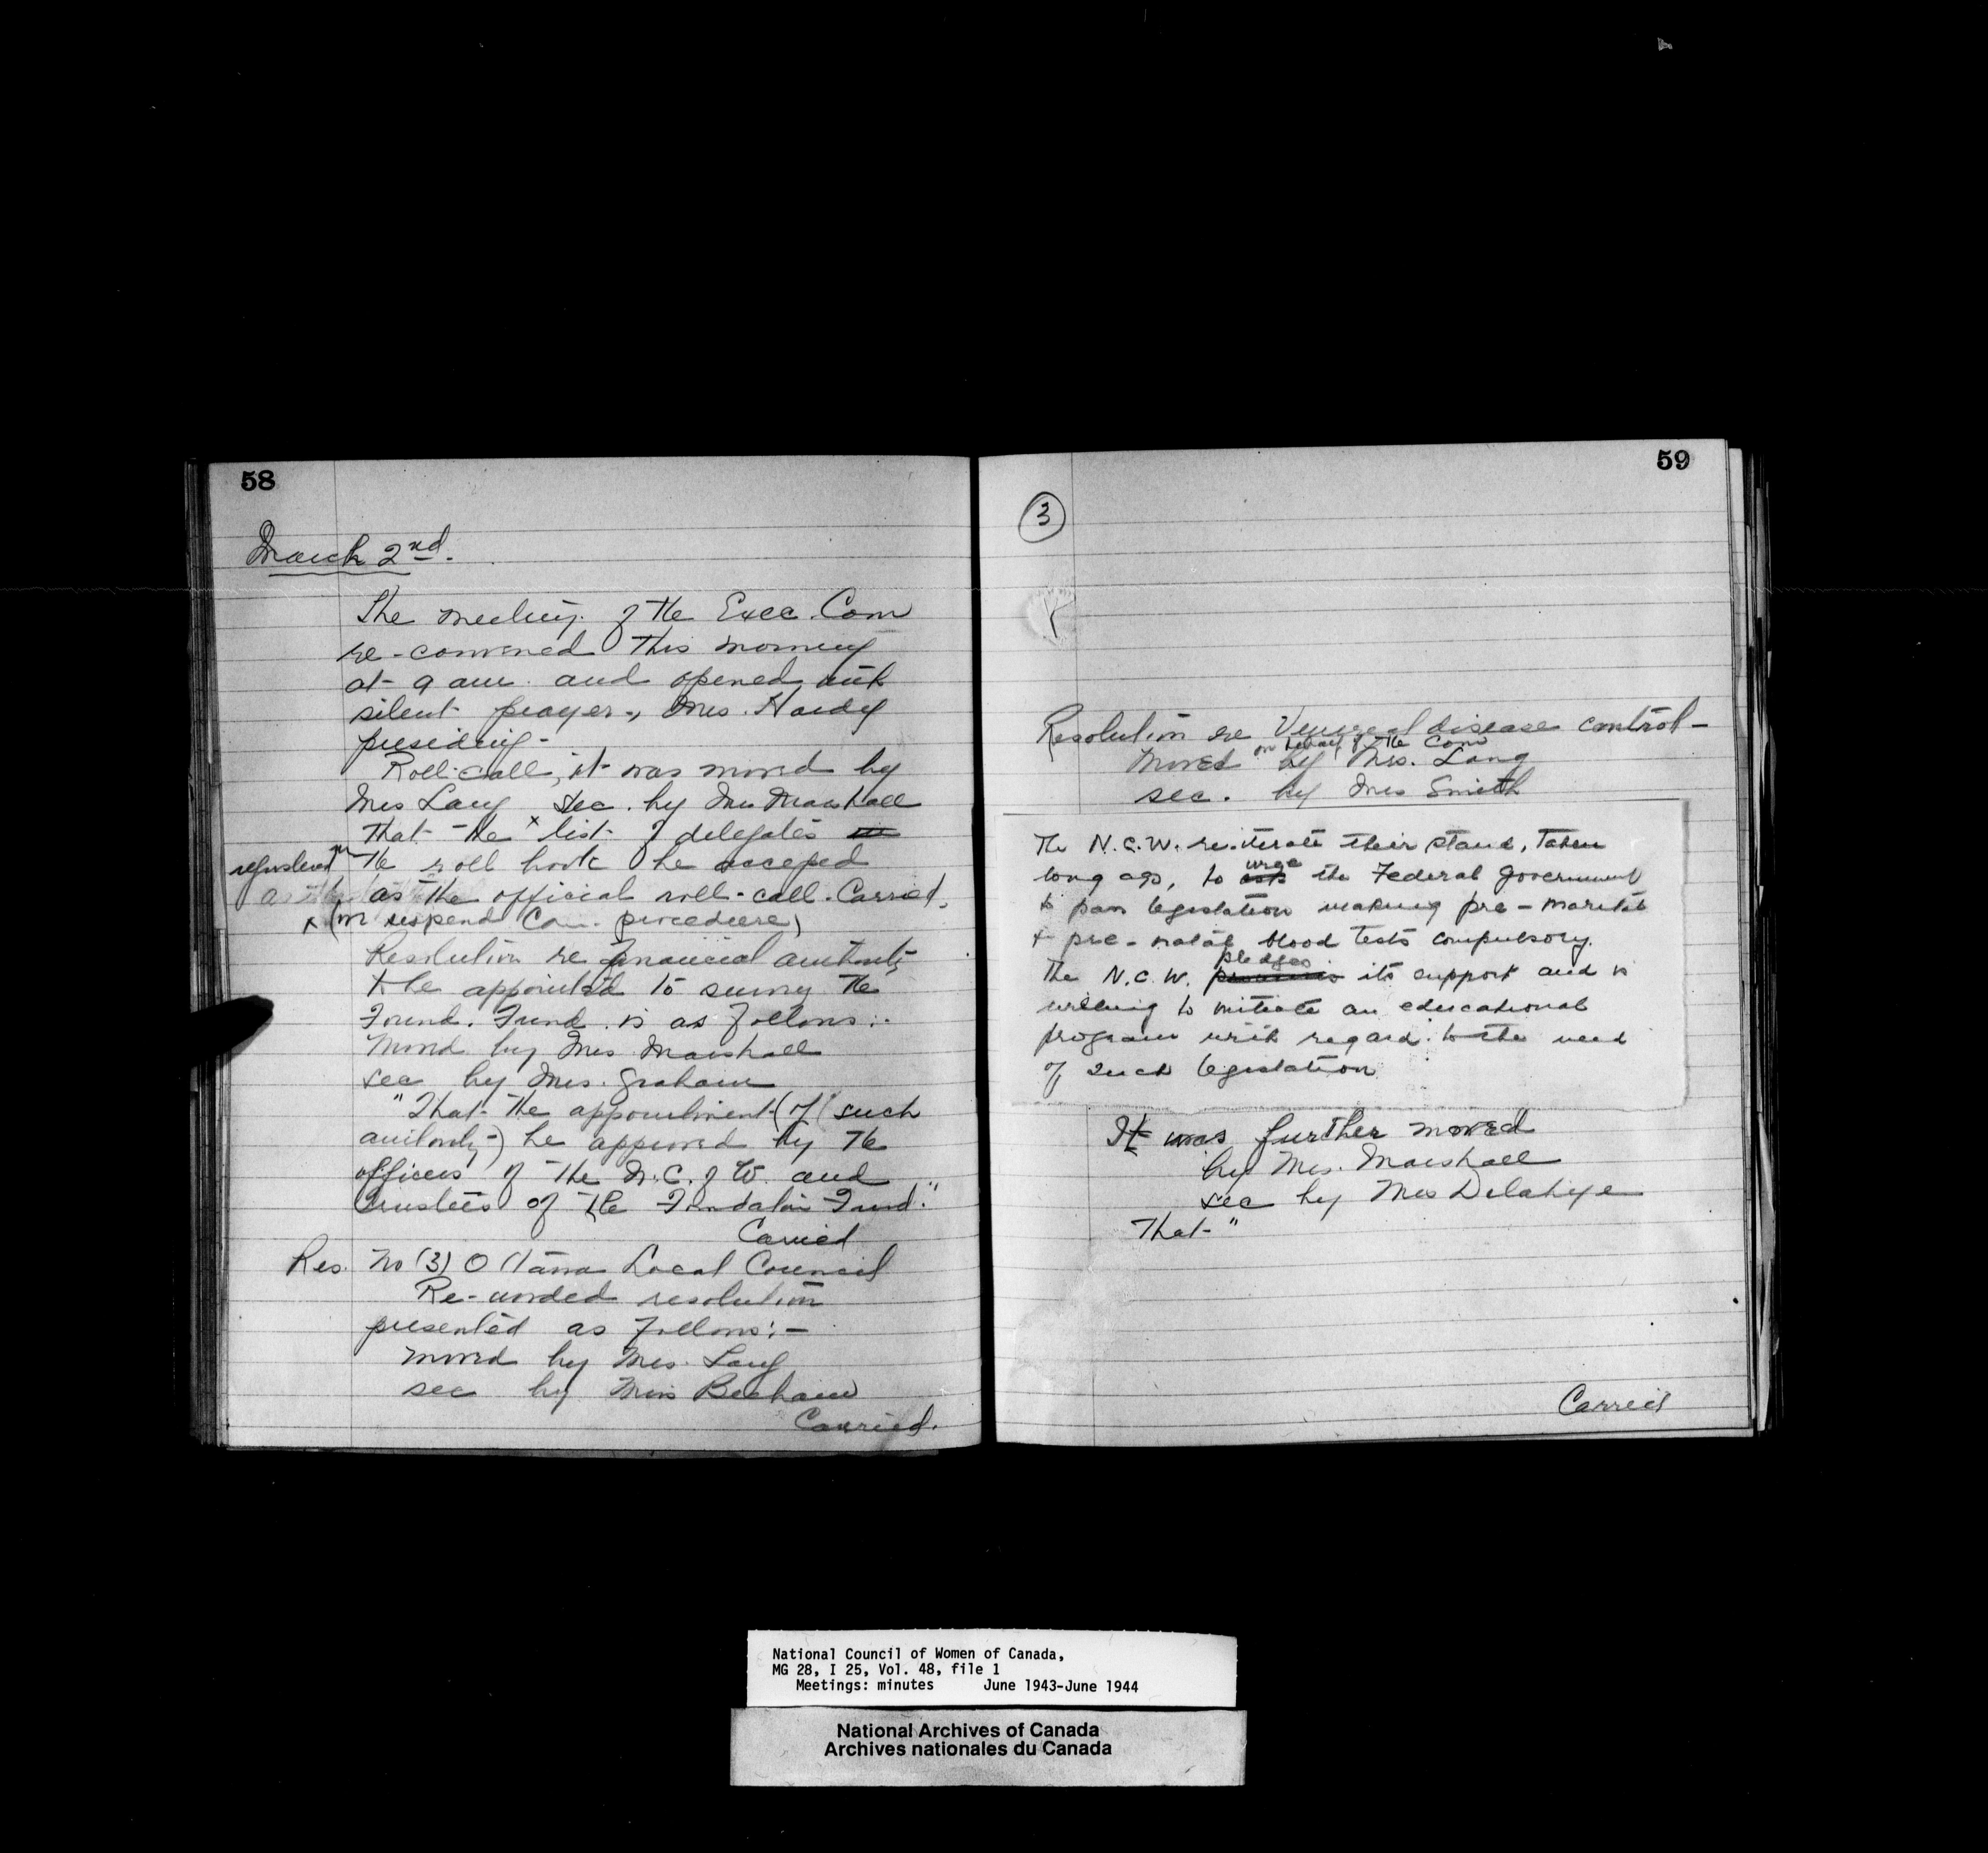 58
March 2nd.
The meeting of the Exec. Com
re-convened this morning
at 9 am. and opened with
silent prayer, Mrs. Hardy
presiding -
Roll-call, it was moved by
Mrs Lang sec. by Mrs Marshall
that the x list of delegates in
registered in the roll book be acceped
as the official roll-call. Carried.
x (in suspend Com. procedeere)
Resolution re financial authority
to be appointed to survey the
Found. Fund. is as follows:-
moved by Mrs Marshall
sec by Mrs. Graham
"That the appointment (of such
authority) be approved by the
officers of the N.C. of W. and
trustees of the Foundation Fund."
Carried
Res. No (3) Ottawa Local Council
Re-worded resolution
presented as follows:-
moved by Mrs. Lang
sec by Miss Beeham
Carried.
59
3
Resolution re Venereal disease control -
on behalf of the Com
Moved by Mrs. Lang
sec. by Mrs Smith
The N.C.W. re-iterate their stand, taken
long ago, to ask urge the Federal Government
to pass legislation making pre-marital
+ pre-natal blood tests compulsory.
The N.C.W. promises pledges its support and is
willing to initiate an educational
program with regard to the need
of such legislation
It was further moved
by Mrs. Marshall
sec by Mrs Delahye
That - "
Carried
National Council of Women of Canada,
MG 28, I 25, Vol. 48, file 1
Meetings: minutes June 1943-June 1944
National Archives of Canada
Archives nationales du Canada